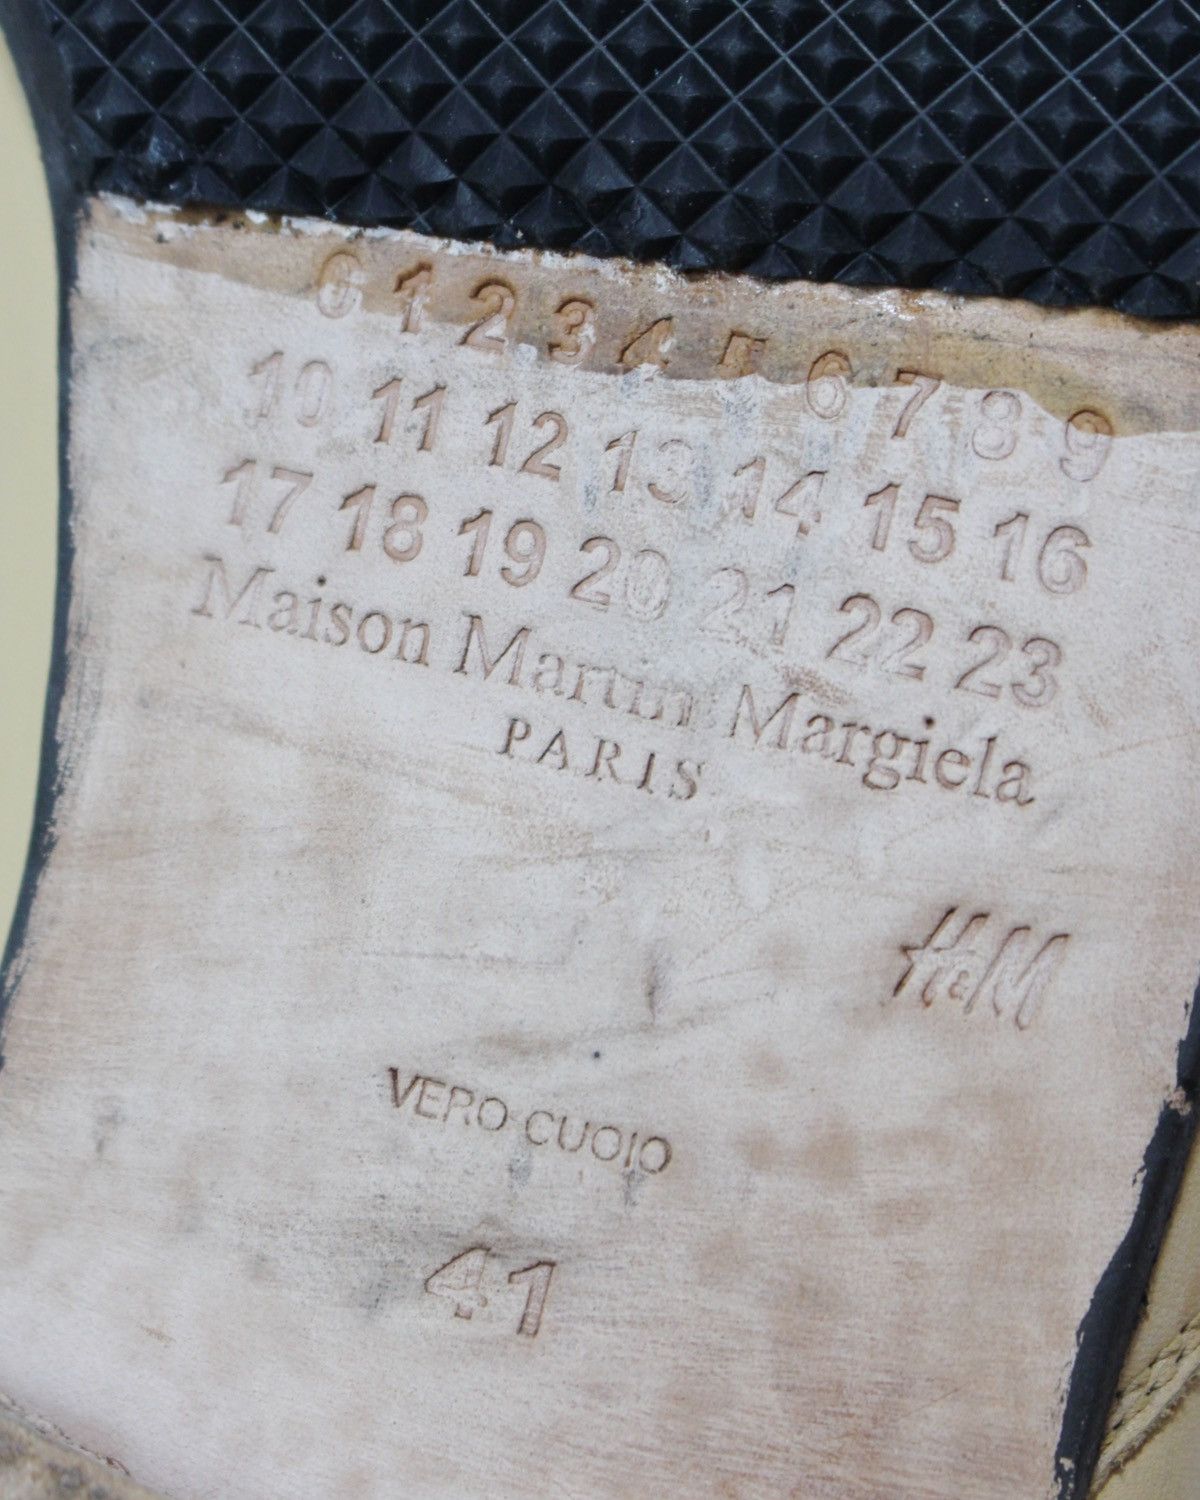 0 1 2 3 4 5 6 7 8 9
10 11 12 13 14 15 16
17 18 19 20 21 22 23
Maison Martin Margiela
PARIS
H&M
VERO CUOIO
41